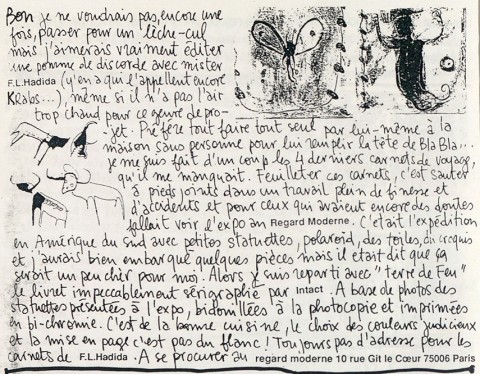 Bon je ne voudrais pas, encore une
fois, passer pour un lèche-cul
mais j'aimerais vraiment éditer
une pomme de discorde avec mister
F.L.Hadida (y'en a qui l'appellent encore
Klabs...), même si il n'a pas l'air
trop chaud pour ce genre de pro-
jet. Préfère tout faire tout seul par lui-même à la
maison sans personne pour lui remplir la tête de Bla Bla...
je me suis fait d'un coup les 4 derniers carnets de voyage,
qu'il me manquait. Feuilleter ces carnets, c'est sauter
à pieds joints dans un travail plein de finesse et
d'accidents et pour ceux qui avaient encore des doutes
fallait voir l'expo au Regard Moderne. C'était l'expédition
en Amérique du sud avec petites statuettes, polaroid, des toiles, du croquis
et j'aurais bien embarqué quelques pièces mais il était dit que ça
serait un peu cher pour moi. Alors je suis reparti avec "terre de Feu"
le livret impeccablement sérigraphié par Intact. A base de photos des
statuettes présentées à l'expo, bidouillées à la photocopie et imprimées
en bi-chromie. C'est de la bonne cuisine, le choix des couleurs judicieux
et la mise en page c'est pas du flanc! Toujours pas d'adresse pour les
carnets de F.L.Hadida. A se procurer au regard moderne 10 rue Git le Cœur 75006 Paris